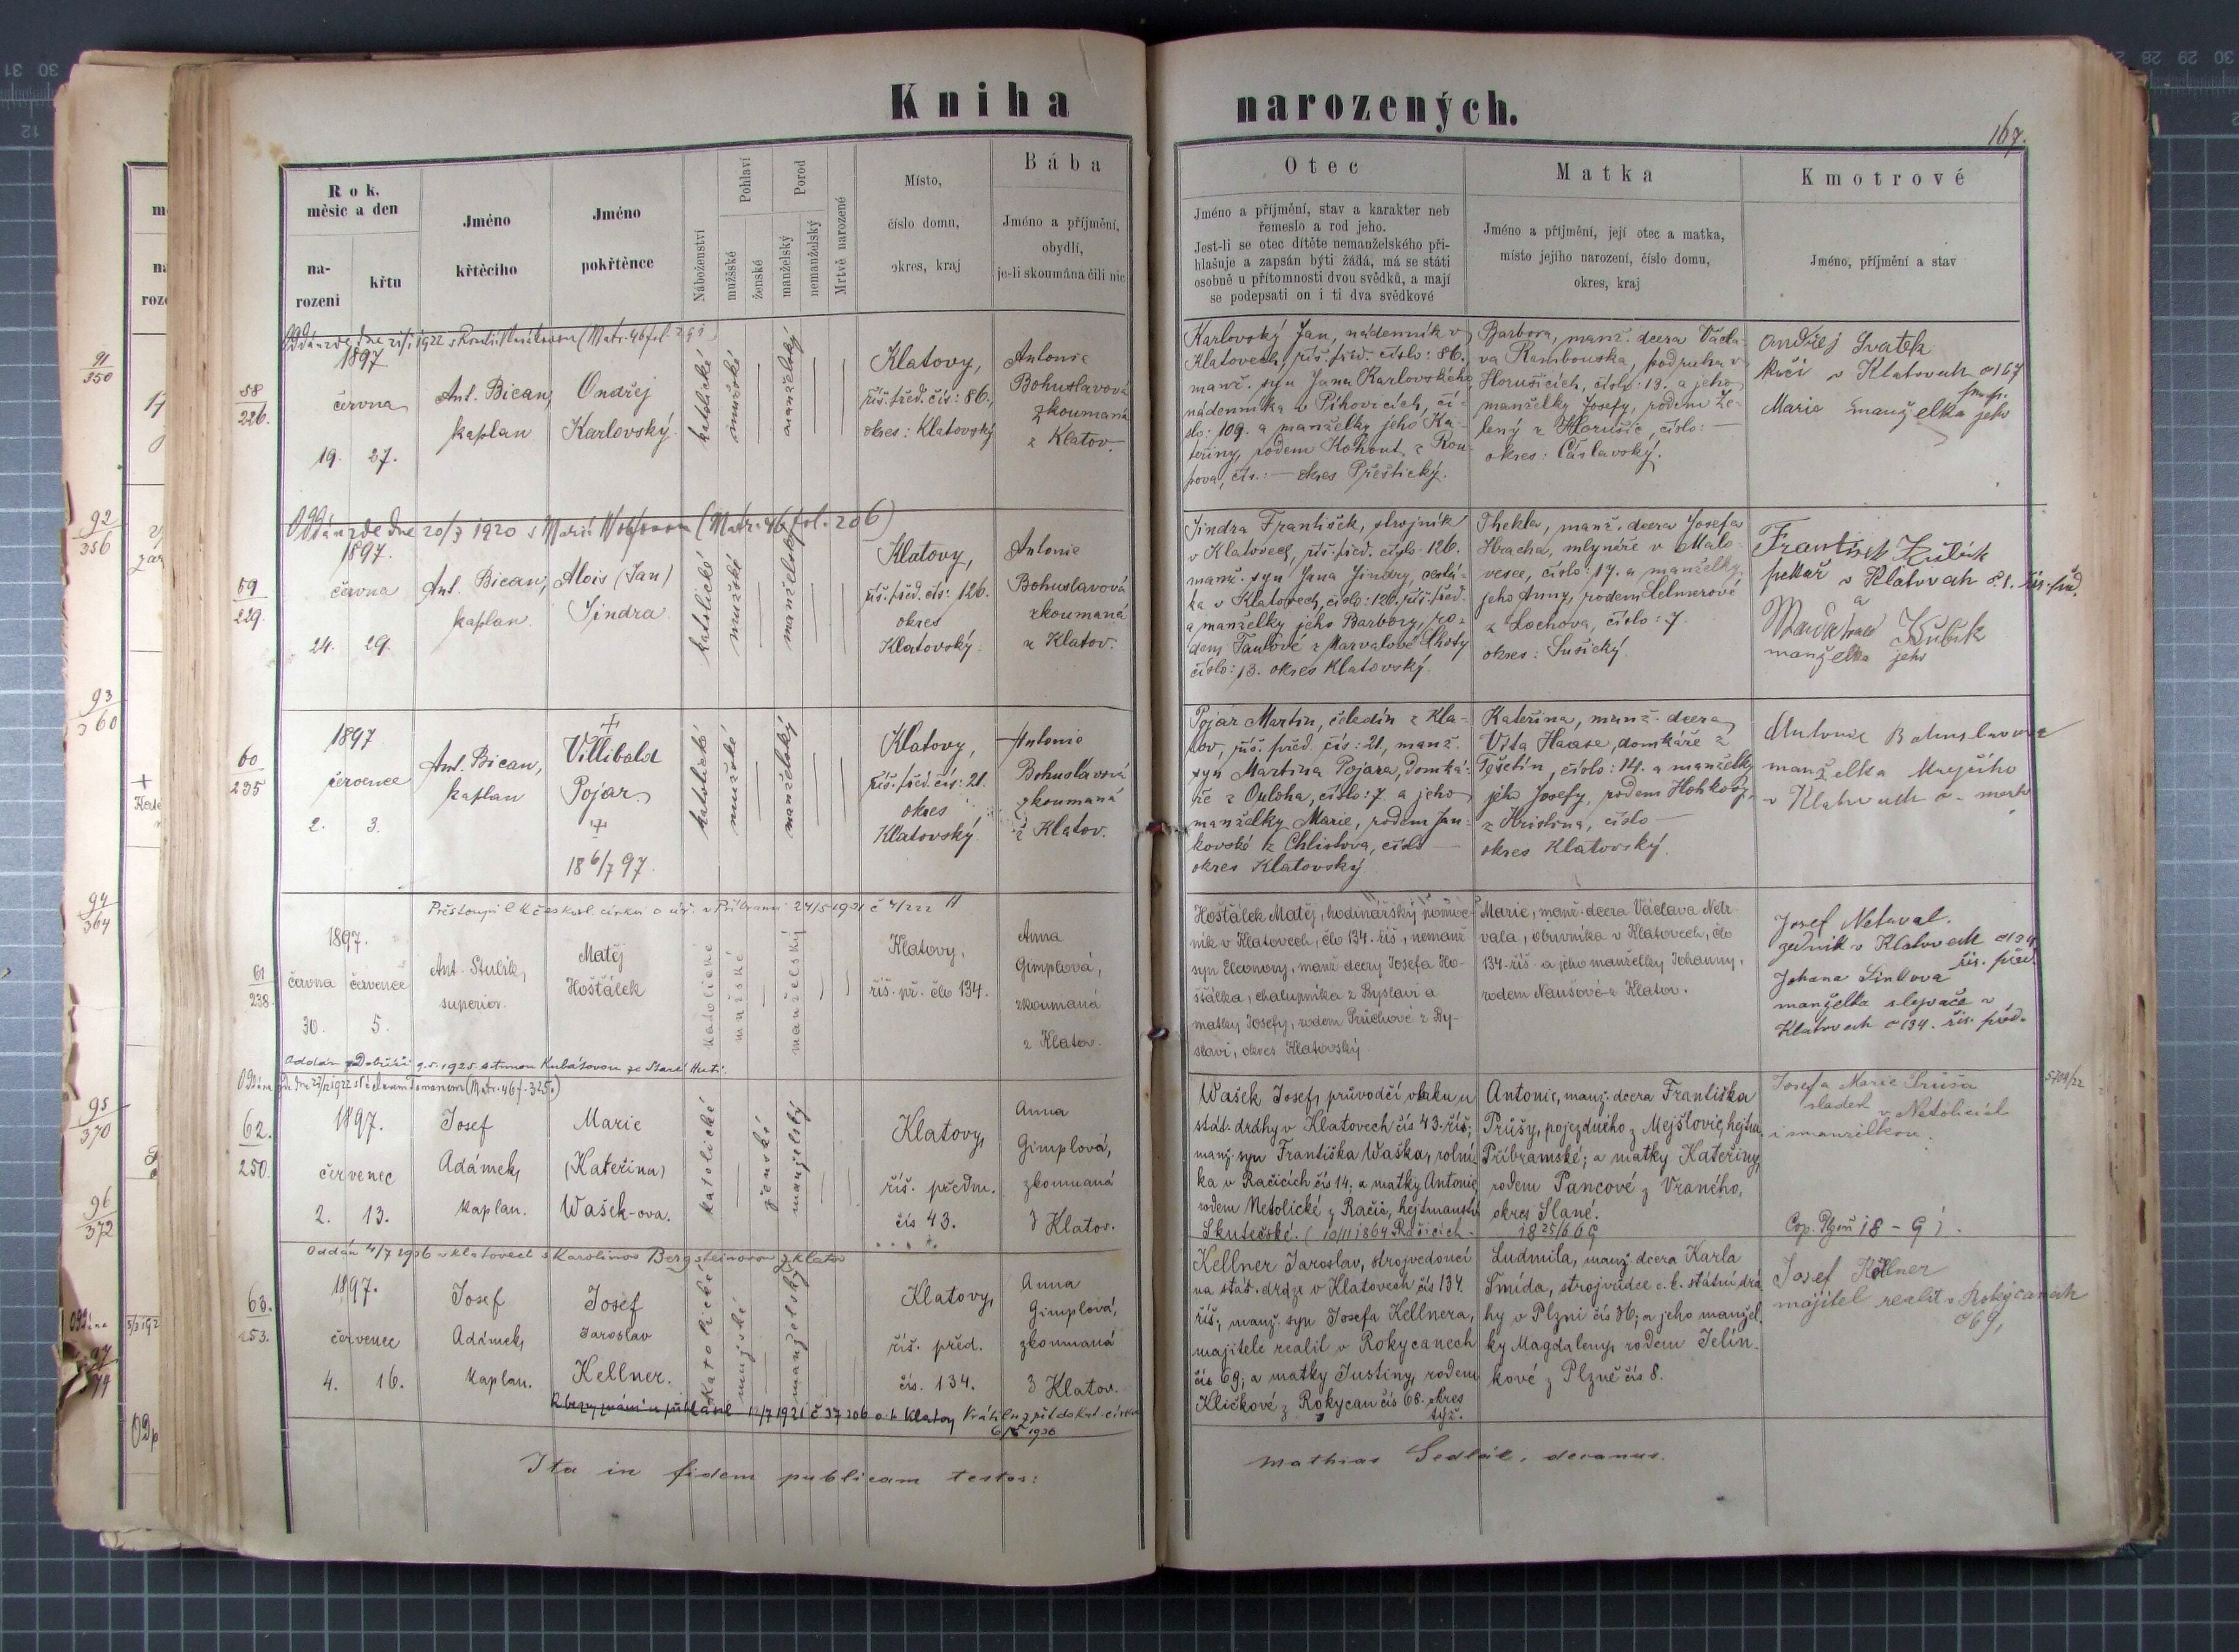 Kniha narozených.
167.
Rok.
měsic a den
na-
rozeni
křtu
Jméno
křtěciho
Jméno
pokřtěnce
Náboženství
Pohlaví
mužšské
ženské
Porod
manželský
nemanželský
Mrtvě narozené
Místo,
číslo domu,
okres, kraj
Bába
Jméno a příjmění,
obydlí,
je-li skoumána čili nic
Otec
Jméno a příjmění, stav a karakter neb
řemeslo a rod jeho.
Jest-li se otec dítěte nemanželského při-
hlašuje a zapsán býti žádá, má se státi
osobně u přítomnosti dvou svědků, a mají
se podepsati on i ti dva svědkové
Matka
Jméno a příjmění, její otec a matka,
místo jejího narození, číslo domu,
okres, kraj
Kmotrové
Jméno, příjmění a stav
58
226.
1897
června
19. 27.
Ant. Bican,
kaplan
Ondřej
Karlovský.
katolické
mužské
manželský
Klatovy,
říš. před. čís: 86.,
okres: Klatovský
Antonie
Bohuslavová
zkoumaná
z Klatov.
Karlovský Jan, nádenník v
Klatovech, říš. před. číslo: 86.
manž. syn Jana Karlovského
nádenníka v Pihovicích, čí-
slo: 109. a manželky jeho Ka-
teřiny, rodem Kohout z Rou-
pova, čís.: — okres Přeštický.
Barbora, manž. dcera Václa-
va Rambouska, podruha v
Horušicích, číslo: 13. a jeho
manželky Josefy, rodem Ze-
lený z Horušic, číslo: —
okres: Čáslavský.
Ondřej Svatek
kočí v Klatovech č 167
Marie manželka jeho
Oddán zde dne 20/3 1920 s Marií (Matr. 46 fol. 206)
59
229.
1897.
června
24. 29.
Ant. Bican,
kaplan.
Alois (Jan)
Jindra
katolické
mužské
manželský
Klatovy,
říš. před. čís: 126.
okres
Klatovský.
Antonie
Bohuslavová
zkoumaná
z Klatov.
Jindra František, strojník
v Klatovech, říš. před. číslo 126.
manž. syn Jana Jindry, cestá-
ka v Klatovech, číslo: 126. říš. před.
a manželky jeho Barbory, ro-
dem Taulové z Marvalové Lhoty
číslo: 13. okres Klatovský.
Thekla, manž. dcera Josefa
Hracha, mlynáře v Malo-
vesce, číslo: 17. a manželky
jeho Anny, rodem Lelmerové
z Lochova, číslo: 7
okres: Sušický.
František Kubík
pekař v Klatovech č 1. říš. před.
a
Kubík
manželka jeho
60
235
1897
července
2. 3.
Ant. Bican,
kaplan
+
Villibald
Pojar.
+
18 6/7 97.
katolické
mužské
manželský
Klatovy,
říš. před. čís: 21.
okres
Klatovský.
Antonie
Bohuslavová
zkoumaná
z Klatov.
Pojar Martin, čeledín z Kla-
tov, říš. před. čís: 21., manž.
syn Martina Pojara, domká-
ře z Ouloha, číslo: 7 a jeho
manželky Marie, rodem Jan-
kovské z Chlistova, číslo —
okres Klatovský
Kateřina, manž. dcera
Víta Haase, domkáře z
Těšetin, číslo: 14. a manželky
jeho Josefy, rodem Hohkovy,
z Hristina, číslo —
okres Klatovský.
Antonie Bohuslavova
manželka
v Klatovech
61
238.
1897.
června července
30. 5.
Ant. Stulík,
superior.
Matěj
Hošťálek
katolické
mužské
manželský
Klatovy,
říš. př. čílo 134.
Anna
Gimplová,
zkoumaná
z Klatov.
Hošťálek Matěj, hodinářský pomoc-
ník v Klatovech, čílo 134. říš., nemanž
syn Eleonory, manž. dcery Josefa Ho-
šťálka, chalupníka z Byslavi a
matky Josefy, rodem Průchové z By-
slavi, okres Klatovský
Marie, manž. dcera Václava Netr-
vala, obuvníka v Klatovech, čílo
134. říš. a jeho manželky Johanny,
rodem Naušové z Klatov.
Josef Netaval.
zedník v Klatovech č 134.
říš. před.
Johana Sinkova
manželka slevače v
Klatovech č 134. říš. před.
Oddán v Dobříši 9.5.1925 s Annou Kubátovou ze Staré Huti.
62.
250.
1897.
červenec
2. 13.
Josef
Adámek,
kaplan.
Marie
(Kateřina)
Wašek-ova.
katolické
ženské
manželský
Klatovy,
říš. předm.
čís 43.
Anna
Gimplová,
zkoumaná
z Klatov.
Wašek Josef, průvodčí vlaku u
stát. dráhy v Klatovech čís 43. říš.;
manž. syn Františka Waška, rolní-
ka v Račicích čís 14; a matky Antonie,
rodem Netolické z Račic, hejtmanství
Skutečské. (10/11 1864 Račicích.
Antonie, manž. dcera Františka
Průšy, pojezdného z Mejšlovic, hejtm.
Příbramské; a matky Kateřiny,
rodem Pancové z Vraného,
okres Slané.
Josefa Marie Průša
sládek v Netolicích
i manželkou.
Cop. Plzeň 18 - 91.
5709/22
Oddán 4/7 1926 v Klatovech s Karolinou Bergsteinovou z Klatov
63.
253.
1897.
červenec
4. 16.
Josef
Adámek,
kaplan.
Josef
Jaroslav
Kellner.
katolické
mužské
manželský
Klatovy,
říš. před.
čís. 134.
Anna
Gimplová,
zkoumaná
z Klatov.
Kellner Jaroslav, strojvedoucí
na stát. dráze v Klatovech čís 134.
říš.; manž. syn Josefa Kellnera,
majitele realit v Rokycanech
čís 69; a matky Justiny, rodem
Kličkové z Rokycan čís 68. okres
týž.
Ludmila, manž. dcera Karla
Šmída, strojvůdce c. k. státní drá-
hy v Plzni čís 36; a jeho manžel-
ky Magdaleny, rodem Jelín-
kové z Plzně čís 8.
Josef Kellner
majitel realit v Rokycanech
č 69,
Ita in fidem publicam testor:
Mathias Sedlák, decanus.
91
350
92
356
93
360
94
364
95
370
96
372